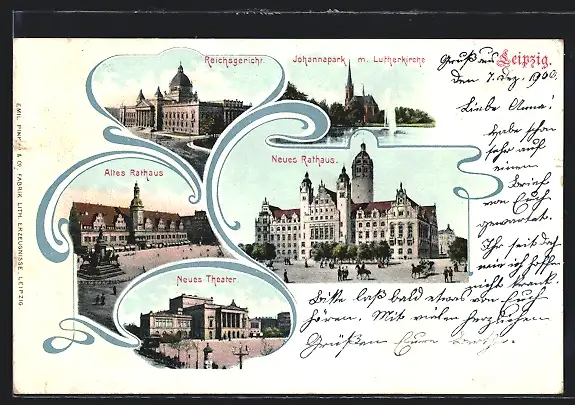 Reichsgericht.
Johannapark m. Lutherkirche
Gruss aus Leipzig.
den 7. Dez. 1900
Liebe Anna!
Habe schon
sehr auf
einen
Brief
von Euch
gewartet.
Ihr seid doch
nicht krank.
Altes Rathaus
Neues Rathaus.
Neues Theater.
Bitte lass bald etwas von Euch
hören. Mit vielen herzlichen
Grüßen Eure
EMIL PINKAU & Co. FABRIK LITH. ERZEUGNISSE, LEIPZIG